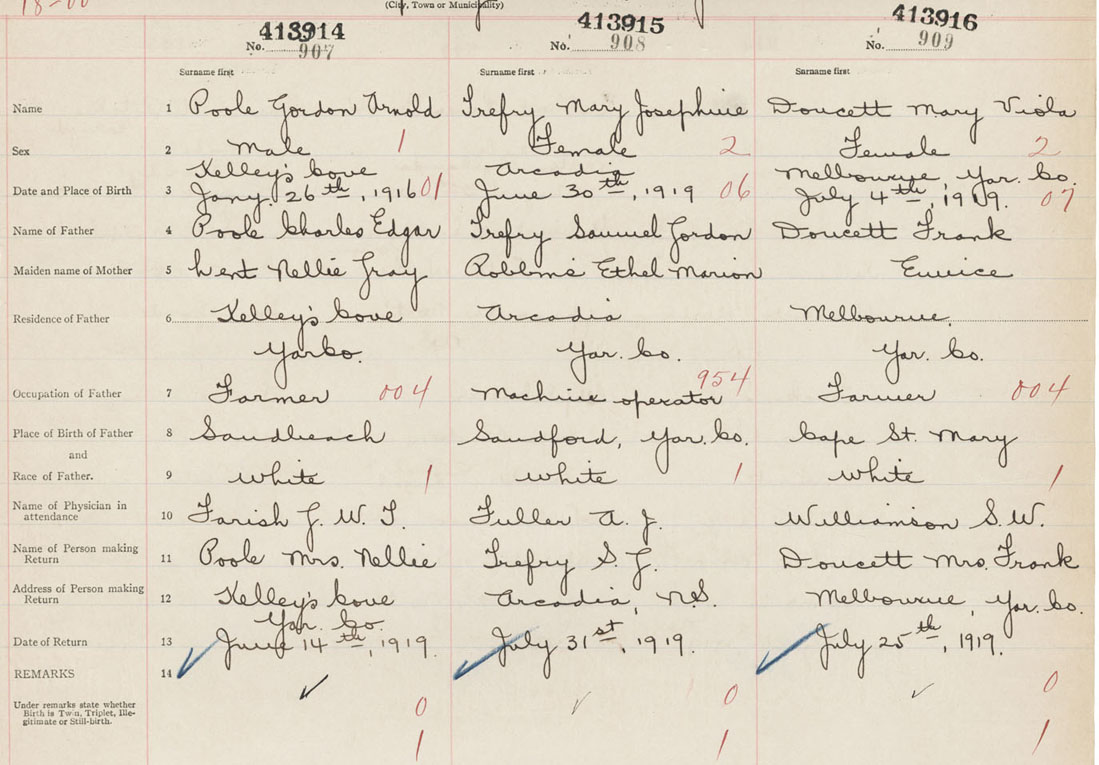 18-00
(City, Town or Municipality)
413914 413915 413916
No. 907 No. 908 No. 909
Surname first Surname first Surname first
Name 1 Poole Gordon Arnold Trefry Mary Josephine Doucett Mary Viola
Sex 2 Male 1 Female 2 Female 2
Kelley's Cove Arcadia Melbourne, Yar. Co.
Date and Place of Birth 3 Jany. 26th, 1916 01 June 30th, 1919 06 July 4th, 1919. 07
Name of Father 4 Poole Charles Edgar Trefry Samuel Gordon Doucett Frank
Maiden name of Mother 5 Hent Nellie Gray Robbins Ethel Marion Eunice
Residence of Father 6 Kelley's Cove Arcadia Melbourne,
Yar Co. Yar. Co. Yar. Co.
Occupation of Father 7 Farmer 004 Machine operator 954 Farmer 004
Place of Birth of Father 8 Sandbeach Sandford, Yar. Co. Cape St. Mary
and
Race of Father. 9 White 1 White 1 White 1
Name of Physician in
attendance 10 Farish G. W. T. Fuller A. J. Williamson S. W.
Name of Person making
Return 11 Poole Mrs. Nellie Trefry S. G. Doucett Mrs. Frank
Address of Person making
Return 12 Kelley's Cove Arcadia, N.S. Melbourne, Yar. Co.
Yar. Co.
Date of Return 13 June 14th, 1919. July 31st, 1919. July 25th, 1919.
REMARKS 14
Under remarks state whether
Birth is Twin, Triplet, Ille-
gitimate or Still-birth.
0 0 0
1 1 1